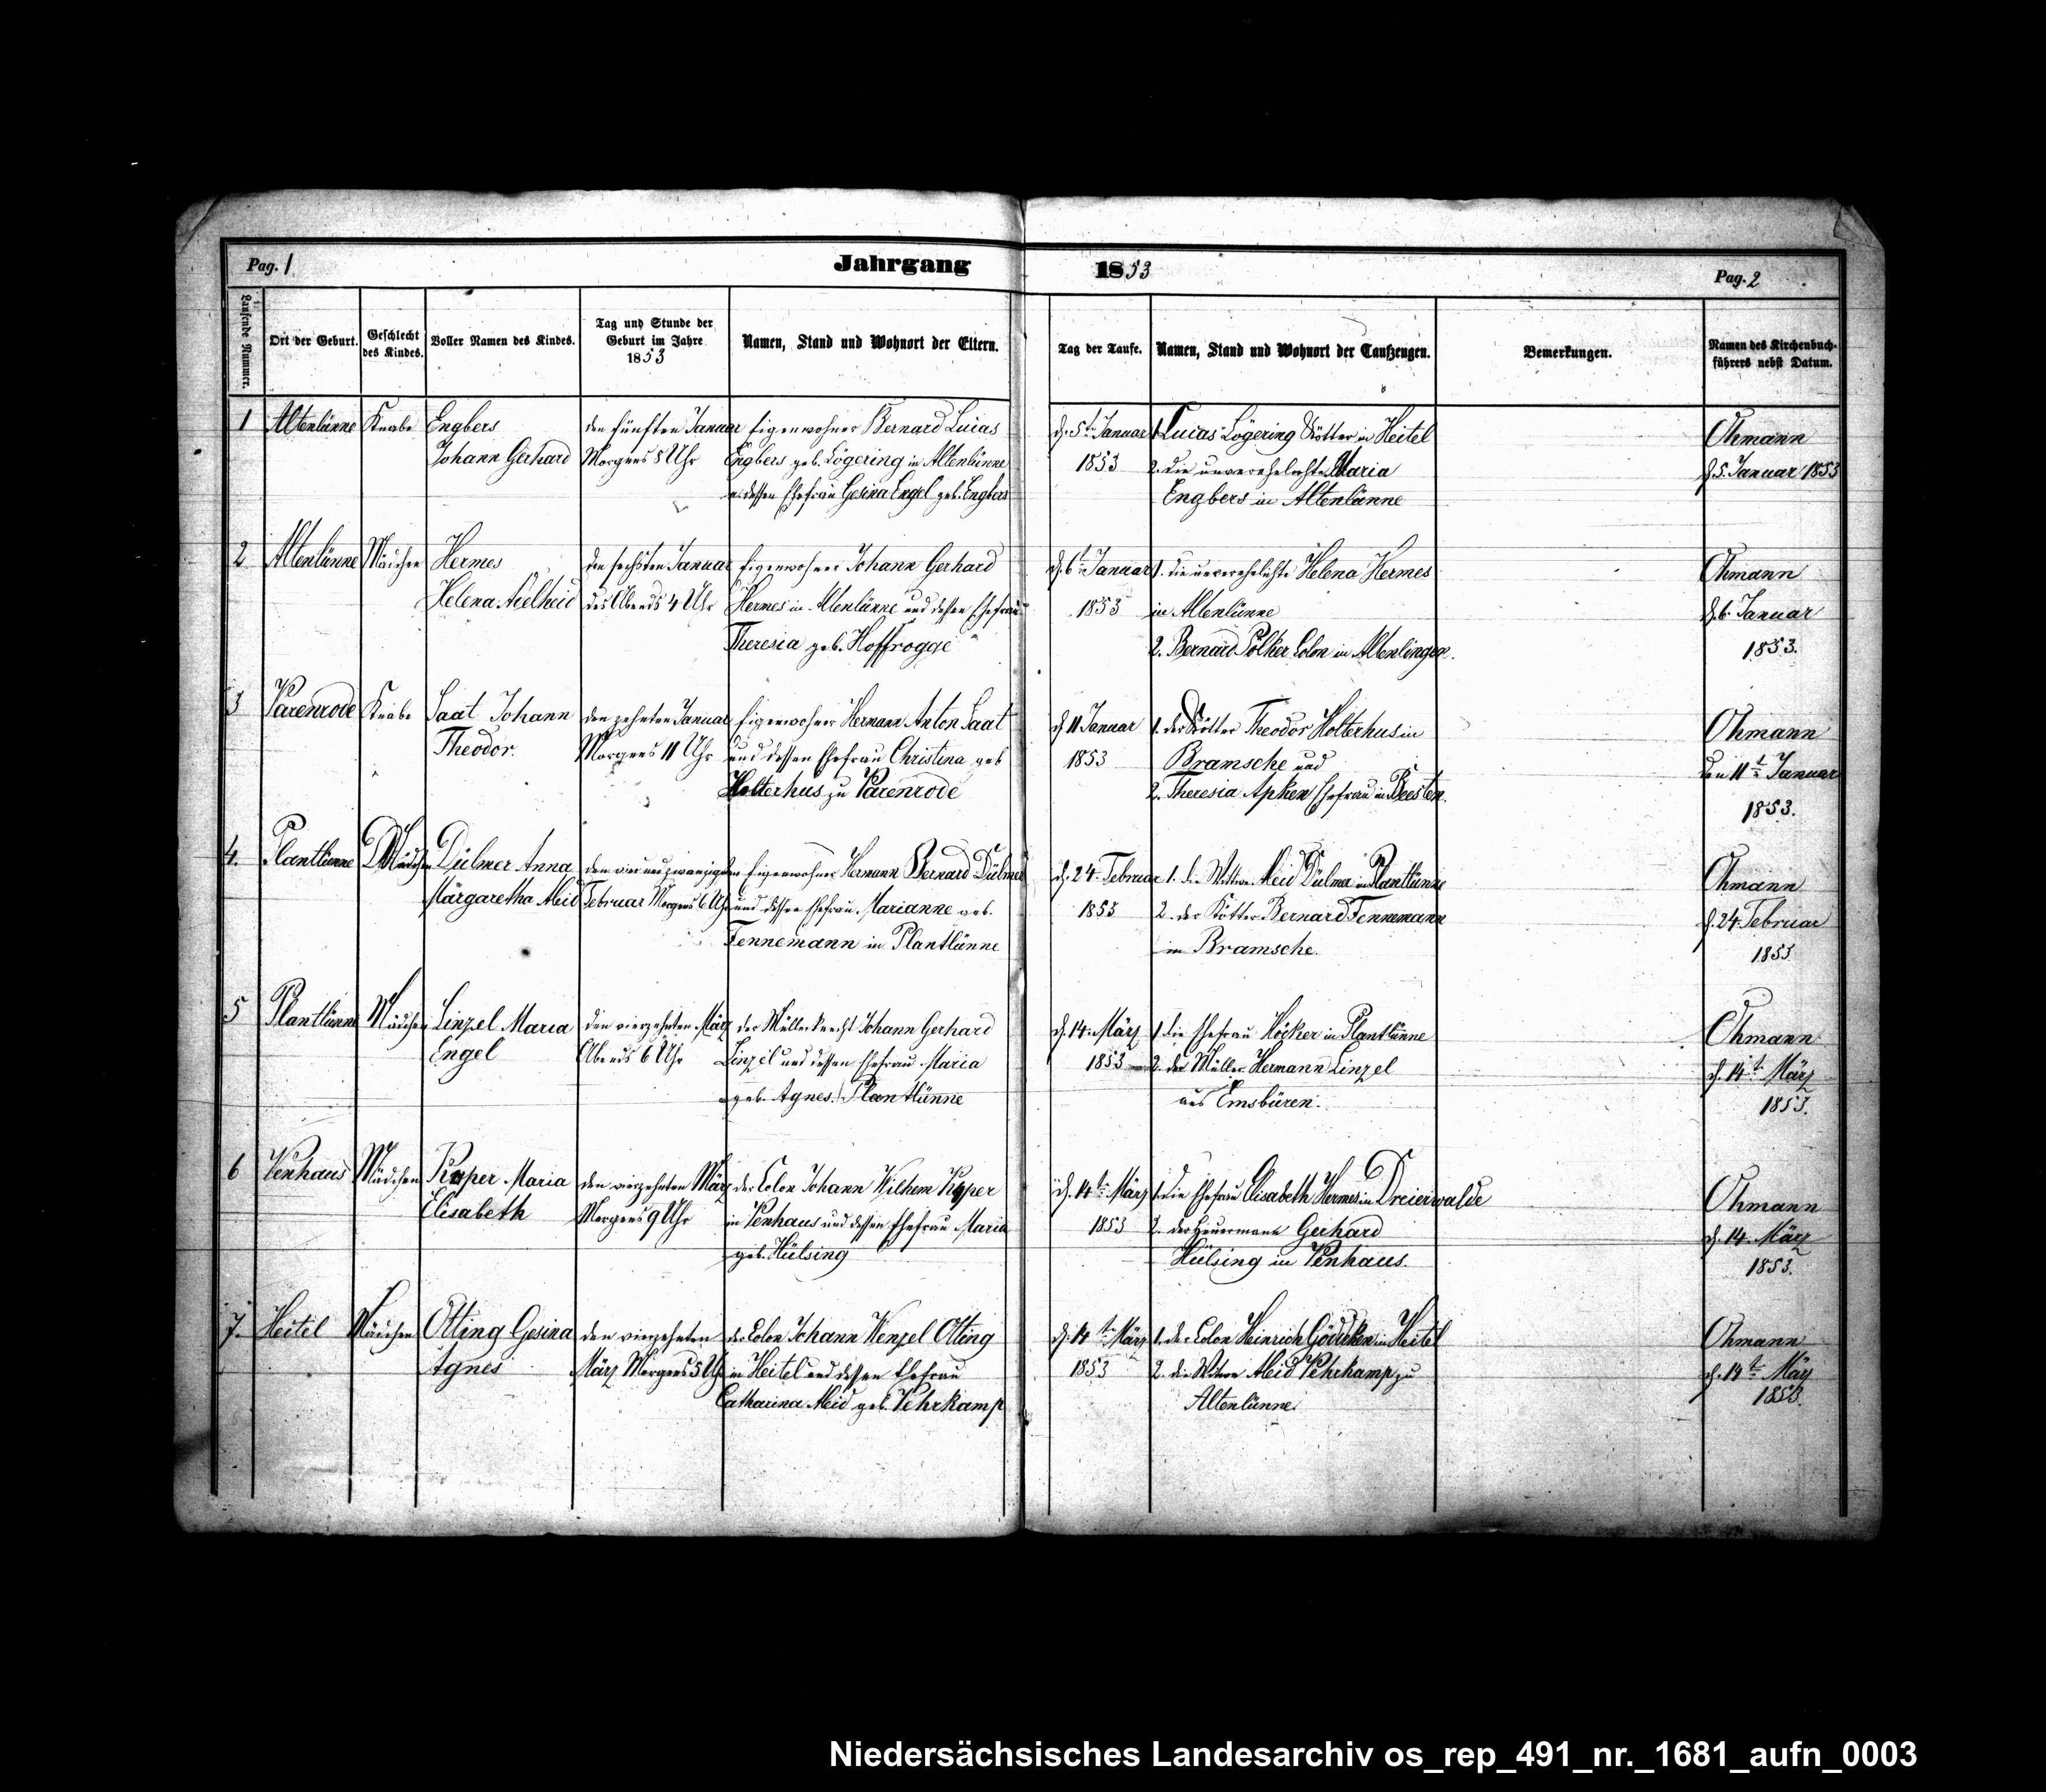 Pag. 1
Jahrgang 1853
Pag. 2
Laufende Nummer.
Ort der Geburt.
Geschlecht des Kindes.
Voller Namen des Kindes.
Tag und Stunde der Geburt im Jahre 1853
Namen, Stand und Wohnort der Eltern.
Tag der Taufe.
Namen, Stand und Wohnort der Taufzeugen.
Bemerkungen.
Namen des Kirchenbuch-
führers nebst Datum.
1
Altenlünne
Knabe
Engbers
Johann Gerhard
den fünften Januar
Morgens 8 Uhr
Eigenwohner Bernard Lucas
Engbers geb. Lögering in Altenlünne
u. dessen Ehefrau Gesina Engel geb. Engbers
d. 5t. Januar
1853
1. Lucas Lögering Kötter in Heitel
2. die unverehelichte Maria
Engbers in Altenlünne
Ohmann
d. 5. Januar 1853
2
Altenlünne
Mädchen
Hermes
Helena Aleheid
den sechsten Januar
des Abends 4 Uhr
Eigenwohner Johann Gerhard
Hermes in Altenlünne und dessen Ehefrau
Theresia geb. Hoffrogge
d. 6t. Januar
1853
1. die unverehelichte Helena Hermes
in Altenlünne
2. Bernard Pölker Colon in Altenlingen.
Ohmann
d. 6. Januar
1853.
3
Varenrode
Knabe
Saat Johann
Theodor.
den zehnten Januar
Morgens 11 Uhr
Eigenwohner Hermann Anton Saat
und dessen Ehefrau Christina geb
Holterhus zu Varenrode
d. 11 Januar
1853
1. der Kötter Theodor Holterhus in
Bramsche und
2. Theresia Apken Ehefrau in Beesten.
Ohmann
den 11t. Januar
1853.
4.
Plantlünne
Mädchen
Dülmer Anna
Margaretha Aleid
den vier und zwanzigsten
Februar Morgens 6 Uhr
Eigenwohner Hermann Bernard Dülmer
und dessen Ehefrau Marianne geb.
Fennemann in Plantlünne
d. 24. Februar
1853
1. die Wittwe Aleid Dülmer in Plantlünne
2. der Kötter Bernard Fennemann
in Bramsche.
Ohmann
d. 24. Februar
1853.
5
Plantlünne
Mädchen
Linzel Maria
Engel
den vierzehnten März
Abends 6 Uhr
der Müllerknecht Johann Gerhard
Linzel und dessen Ehefrau Maria
geb. Agnes. Plantlünne
d. 14. März
1853
1. die Ehefrau Höcker in Plantlünne
2. der Müller Hermann Linzel
aus Emsbüren.
Ohmann
d. 14t. März
1853.
6
Venhaus
Mädchen
Maria
Elisabeth
den vierzehnten März
Morgens 9 Uhr
der Colon Johann Wilhem
in Venhaus und dessen Ehefrau Maria
geb. Hülsing
d. 14t. März
1853
1. die Ehefrau Elisabeth Hermes in Dreierwalde
2. der Heuermann Gerhard
Hülsing in Venhaus.
Ohmann
d. 14. März
1853.
7.
Heitel
Mädchen
Olting Gesina
Agnes
den vierzehnten
März Morgens 5 Uhr
der Colon Johann Wenzel Olting
in Heitel und dessen Ehefrau
Catharina Aleid geb. Vehrkamp
d. 14t. März
1853
1. der Colon Heinrich Gödeken in Heitel
2. die Witwe Aleid Vehrkamp zu
Altenlünne.
Ohmann
d. 14t. März
1853.
Niedersächsisches Landesarchiv os_rep_491_nr._1681_aufn_0003